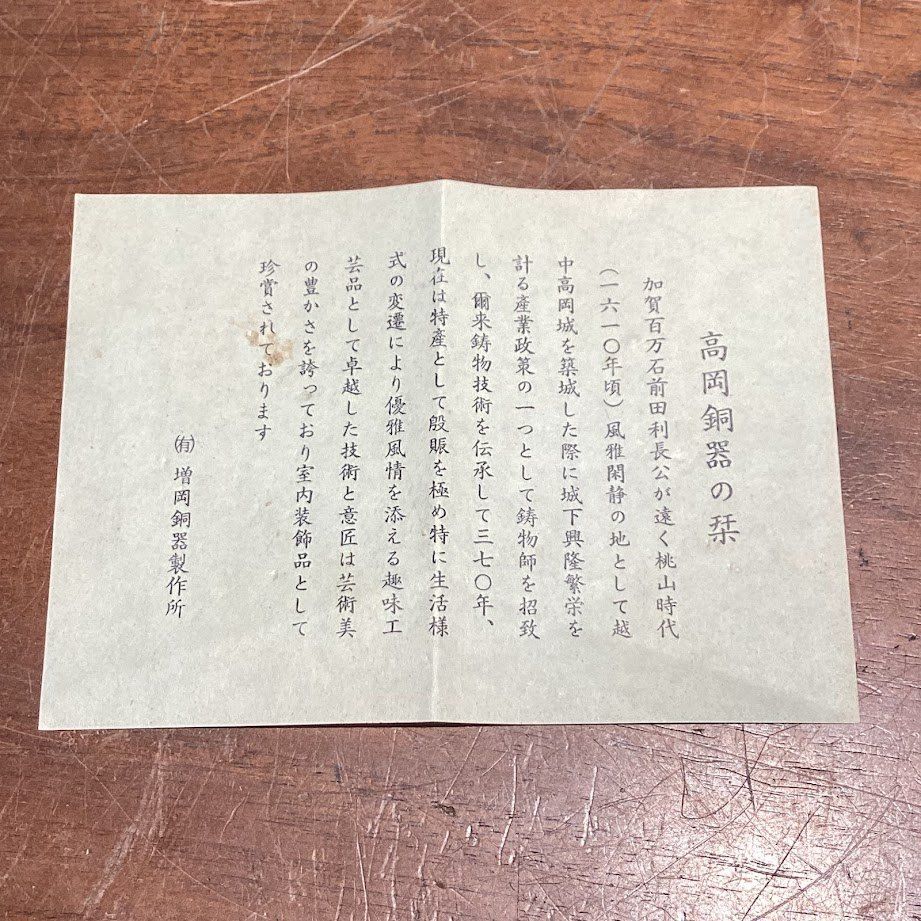 高岡銅器の栞
加賀百万石前田利長公が遠く桃山時代
（一六一〇年頃）風雅閑静の地として越
中高岡城を築城した際に城下興隆繁栄を
計る産業政策の一つとして鋳物師を招致
し、爾来鋳物技術を伝承して三七〇年、
現在は特産として殷賑を極め特に生活様
式の変遷により優雅風情を添える趣味工
芸品として卓越した技術と意匠は芸術美
の豊かさを誇っており室内装飾品として
珍賞されております
㈲増岡銅器製作所